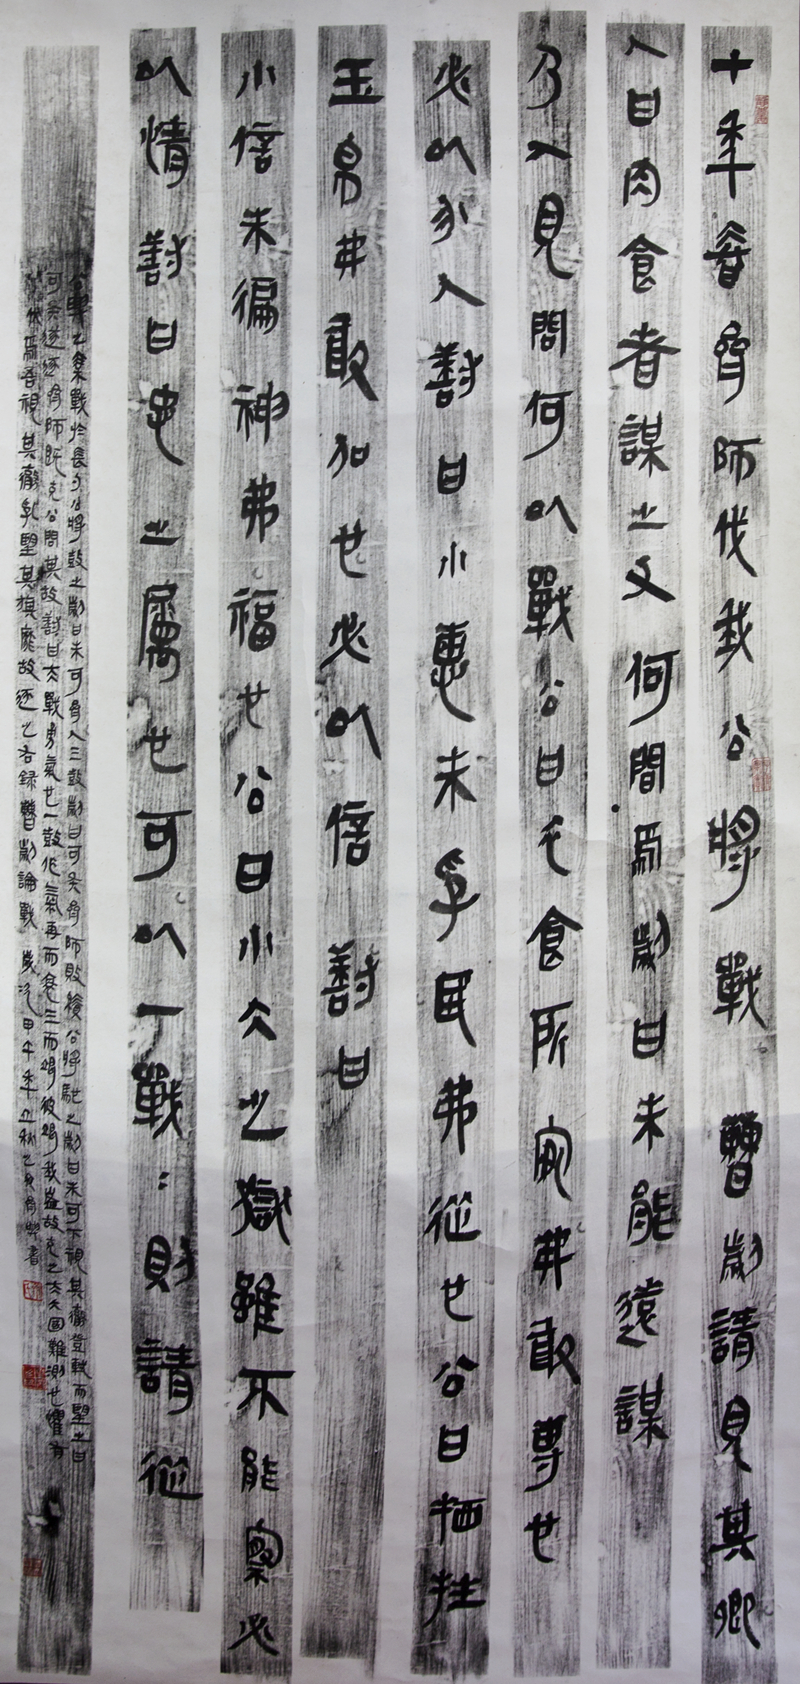 十年春齊師伐我公將戰曹劌請見其鄉
人曰肉食者謀之又何間焉劌曰未能遠謀
乃入見問何以戰公曰衣食所安弗敢專也
必以分人對曰小惠未孚民弗從也公曰牺牲
玉帛弗敢加也必以信對曰
小信未徧神弗福也公曰小大之獄雖不能察必
以情對曰忠之屬也可以一戰:則請從
公與之乘戰於長勺公將鼓之劌曰未可齊人三鼓劌曰可矣齊師敗績公將馳之劌曰未可下視其轍登軾而望之曰
可矣遂逐齊師既克公問其故對曰夫戰勇氣也一鼓作氣再而衰三而竭彼竭我盈故克之夫大國難測也懼有
伏焉吾視其轍亂望其旗靡故逐之右錄曹劌論戰歲次甲午年立秋書